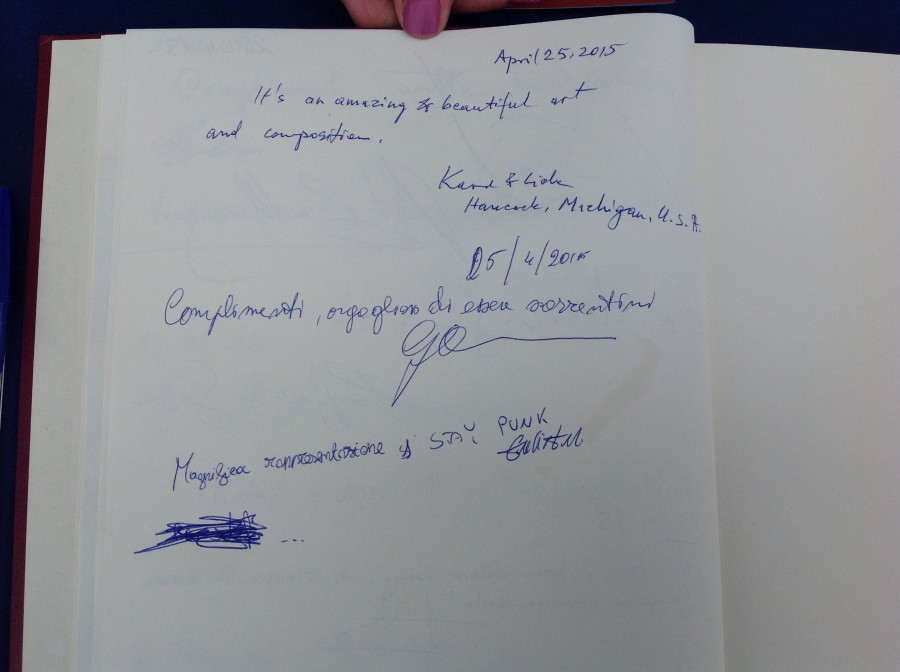 April 25, 2015
It's an amazing & beautiful art
and composition.
&
Hancock, Michigan, U.S.A.
25/4/2015
Complimenti, orgogliosi di essere sorrentini
Magnifica rappresentazione di STAY PUNK
...